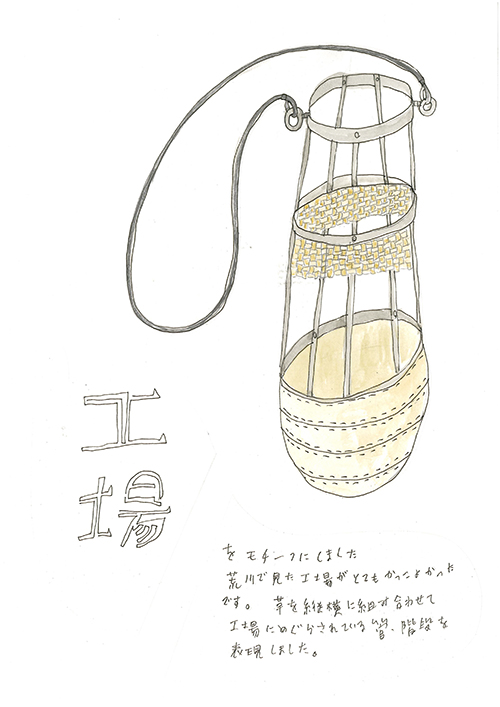 工
場
をモチーフにしました
荒川で見た工場がとてもかっこよかった
です。 革を縦横に組み合わせて
工場にめぐらされている管、階段を
表現しました。